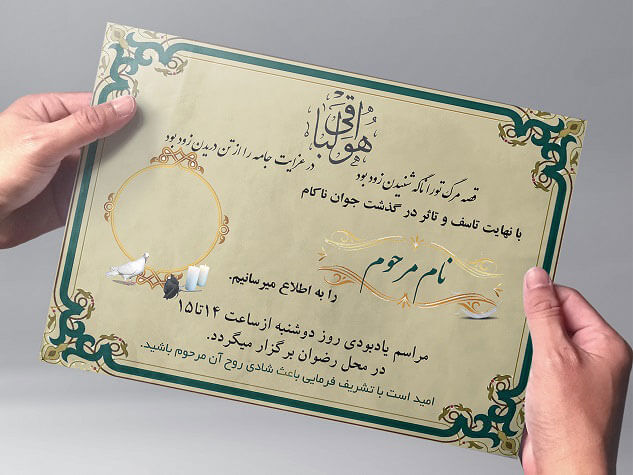 هوالباقی
قصه مرگ تو را ناگه شنیدن زود بود
در عزایت جامه را از تن دریدن زود بود
با نهایت تاسف و تاثر در گذشت جوان ناکام
نام مرحوم
را به اطلاع میرسانیم.
مراسم یادبودی روز دوشنبه از ساعت ۱۴ تا ۱۵
در محل رضوان برگزار میگردد.
امید است با تشریف فرمایی باعث شادی روح آن مرحوم باشید.